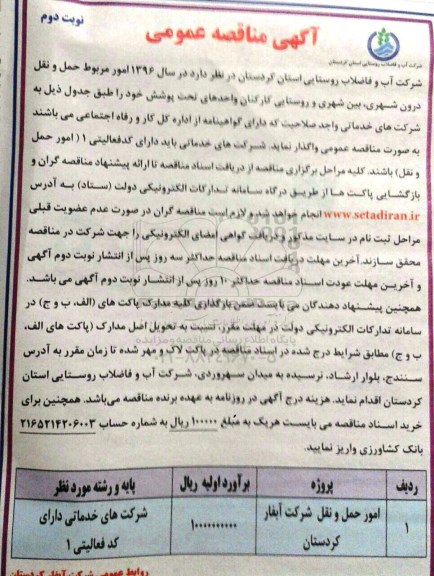 نوبت دوم
آگهی مناقصه عمومی
شرکت آب و فاضلاب روستایی استان کردستان
شرکت آب و فاضلاب روستایی استان کردستان در نظر دارد در سال ۱۳۹۶ امور مربوط حمل و نقل
درون شهری، بین شهری و روستایی کارکنان واحدهای تحت پوشش خود را طبق جدول ذیل به
شرکت های خدماتی واجد صلاحیت که دارای گواهینامه از اداره کل کار و رفاه اجتماعی می باشند
به صورت مناقصه عمومی واگذار نماید. شرکت های خدماتی باید دارای کدفعالیتی ۱ ( امور حمل
و نقل) باشند. کلیه مراحل برگزاری مناقصه از دریافت اسناد مناقصه تا ارائه پیشنهاد مناقصه گران و
بازگشایی پاکت ها از طریق درگاه سامانه تدارکات الکترونیکی دولت (ستاد) به آدرس
www.setadiran.ir انجام خواهد شد و لازم است مناقصه گران در صورت عدم عضویت قبلی
مراحل ثبت نام در سایت مذکور و دریافت گواهی امضای الکترونیکی را جهت شرکت در مناقصه
محقق سازند. آخرین مهلت دریافت اسناد مناقصه حداکثر سه روز پس از انتشار نوبت دوم آگهی
و آخرین مهلت عودت اسناد مناقصه حداکثر ۱۰ روز پس از انتشار نوبت دوم آگهی می باشد.
همچنین پیشنهاد دهندگان می بایست ضمن بارگذاری کلیه مدارک پاکت های (الف، ب و ج) در
سامانه تدارکات الکترونیکی دولت در مهلت مقرر، نسبت به تحویل اصل مدارک (پاکت های الف،
ب و ج) مطابق شرایط درج شده در اسناد مناقصه در پاکت لاک و مهر شده تا زمان مقرر به آدرس
سنندج، بلوار ارشاد، نرسیده به میدان سهروردی، شرکت آب و فاضلاب روستایی استان
کردستان اقدام نماید. هزینه درج آگهی در روزنامه به عهده برنده مناقصه می‌باشد. همچنین برای
خرید اسناد مناقصه می بایست هریک به مبلغ ۱۰۰۰۰۰ ریال به شماره حساب ۲۱۶۵۲۱۴۲۰۶۰۰۳
بانک کشاورزی واریز نمایید.
ردیف پروژه برآورد اولیه ریال پایه و رشته مورد نظر
۱ امور حمل و نقل شرکت آبفار کردستان ۱۰۰۰۰۰۰۰۰۰۰ شرکت های خدماتی دارای کد فعالیتی ۱
روابط عمومی شرکت آبفار کردستان